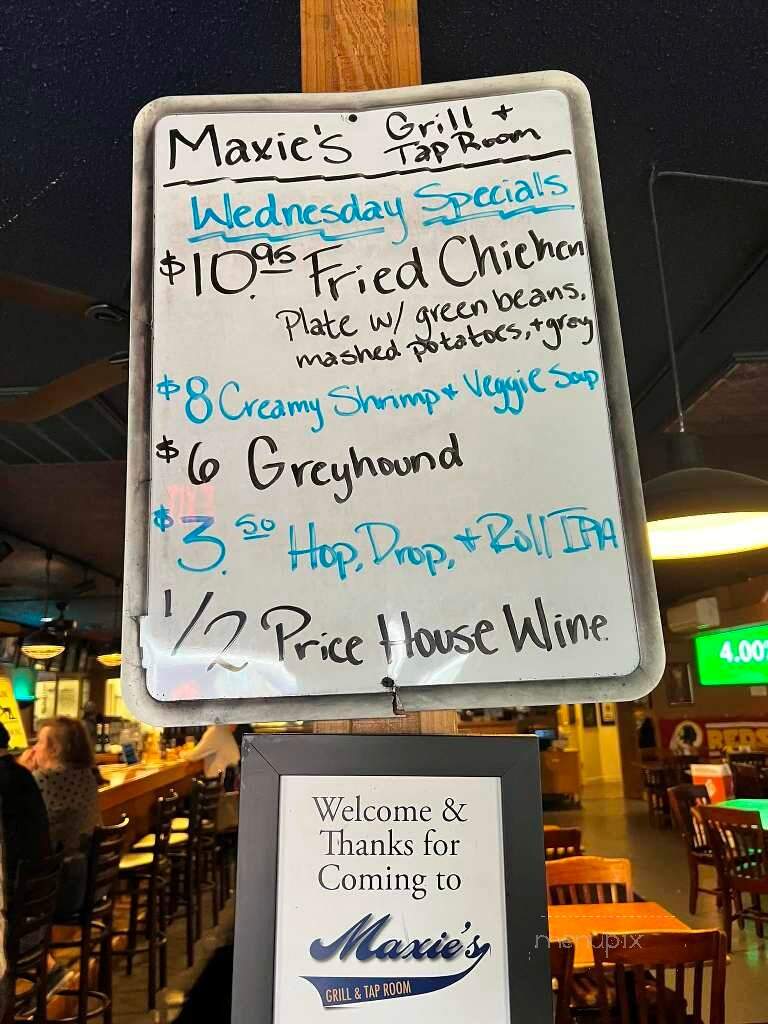 Maxie's Grill +
Tap Room
Wednesday Specials
$10.95 Fried Chicken
Plate w/ green beans,
mashed potatoes, + gravy
$8 Creamy Shrimp + Veggie Soup
$6 Greyhound
$3.50 Hop, Drop, + Roll IPA
1/2 Price House Wine
4.00
REDS
Welcome &
Thanks for
Coming to
Maxie's
GRILL & TAP ROOM
menupix